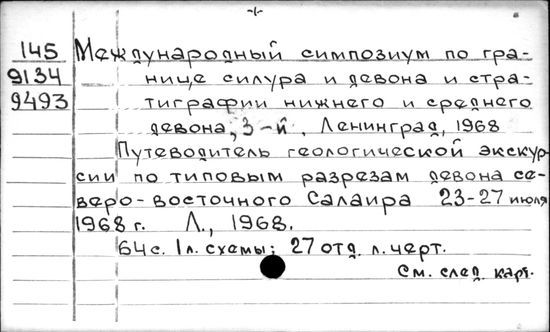 -1-
145 Международный симпозиум по гра-
9134 нице силура и девона и стра-
9493 тиграфии нижнего и среднего
девона, 3-й, Ленинград, 1968
Путеводитель геологической экскур-
сии по типовым разрезам девона се-
веро-восточного Салаира 23-27 июля
1968 г. Л., 1968.
64 с. 1 л. схемы; 27 отд. л. черт.
См. след. карт.